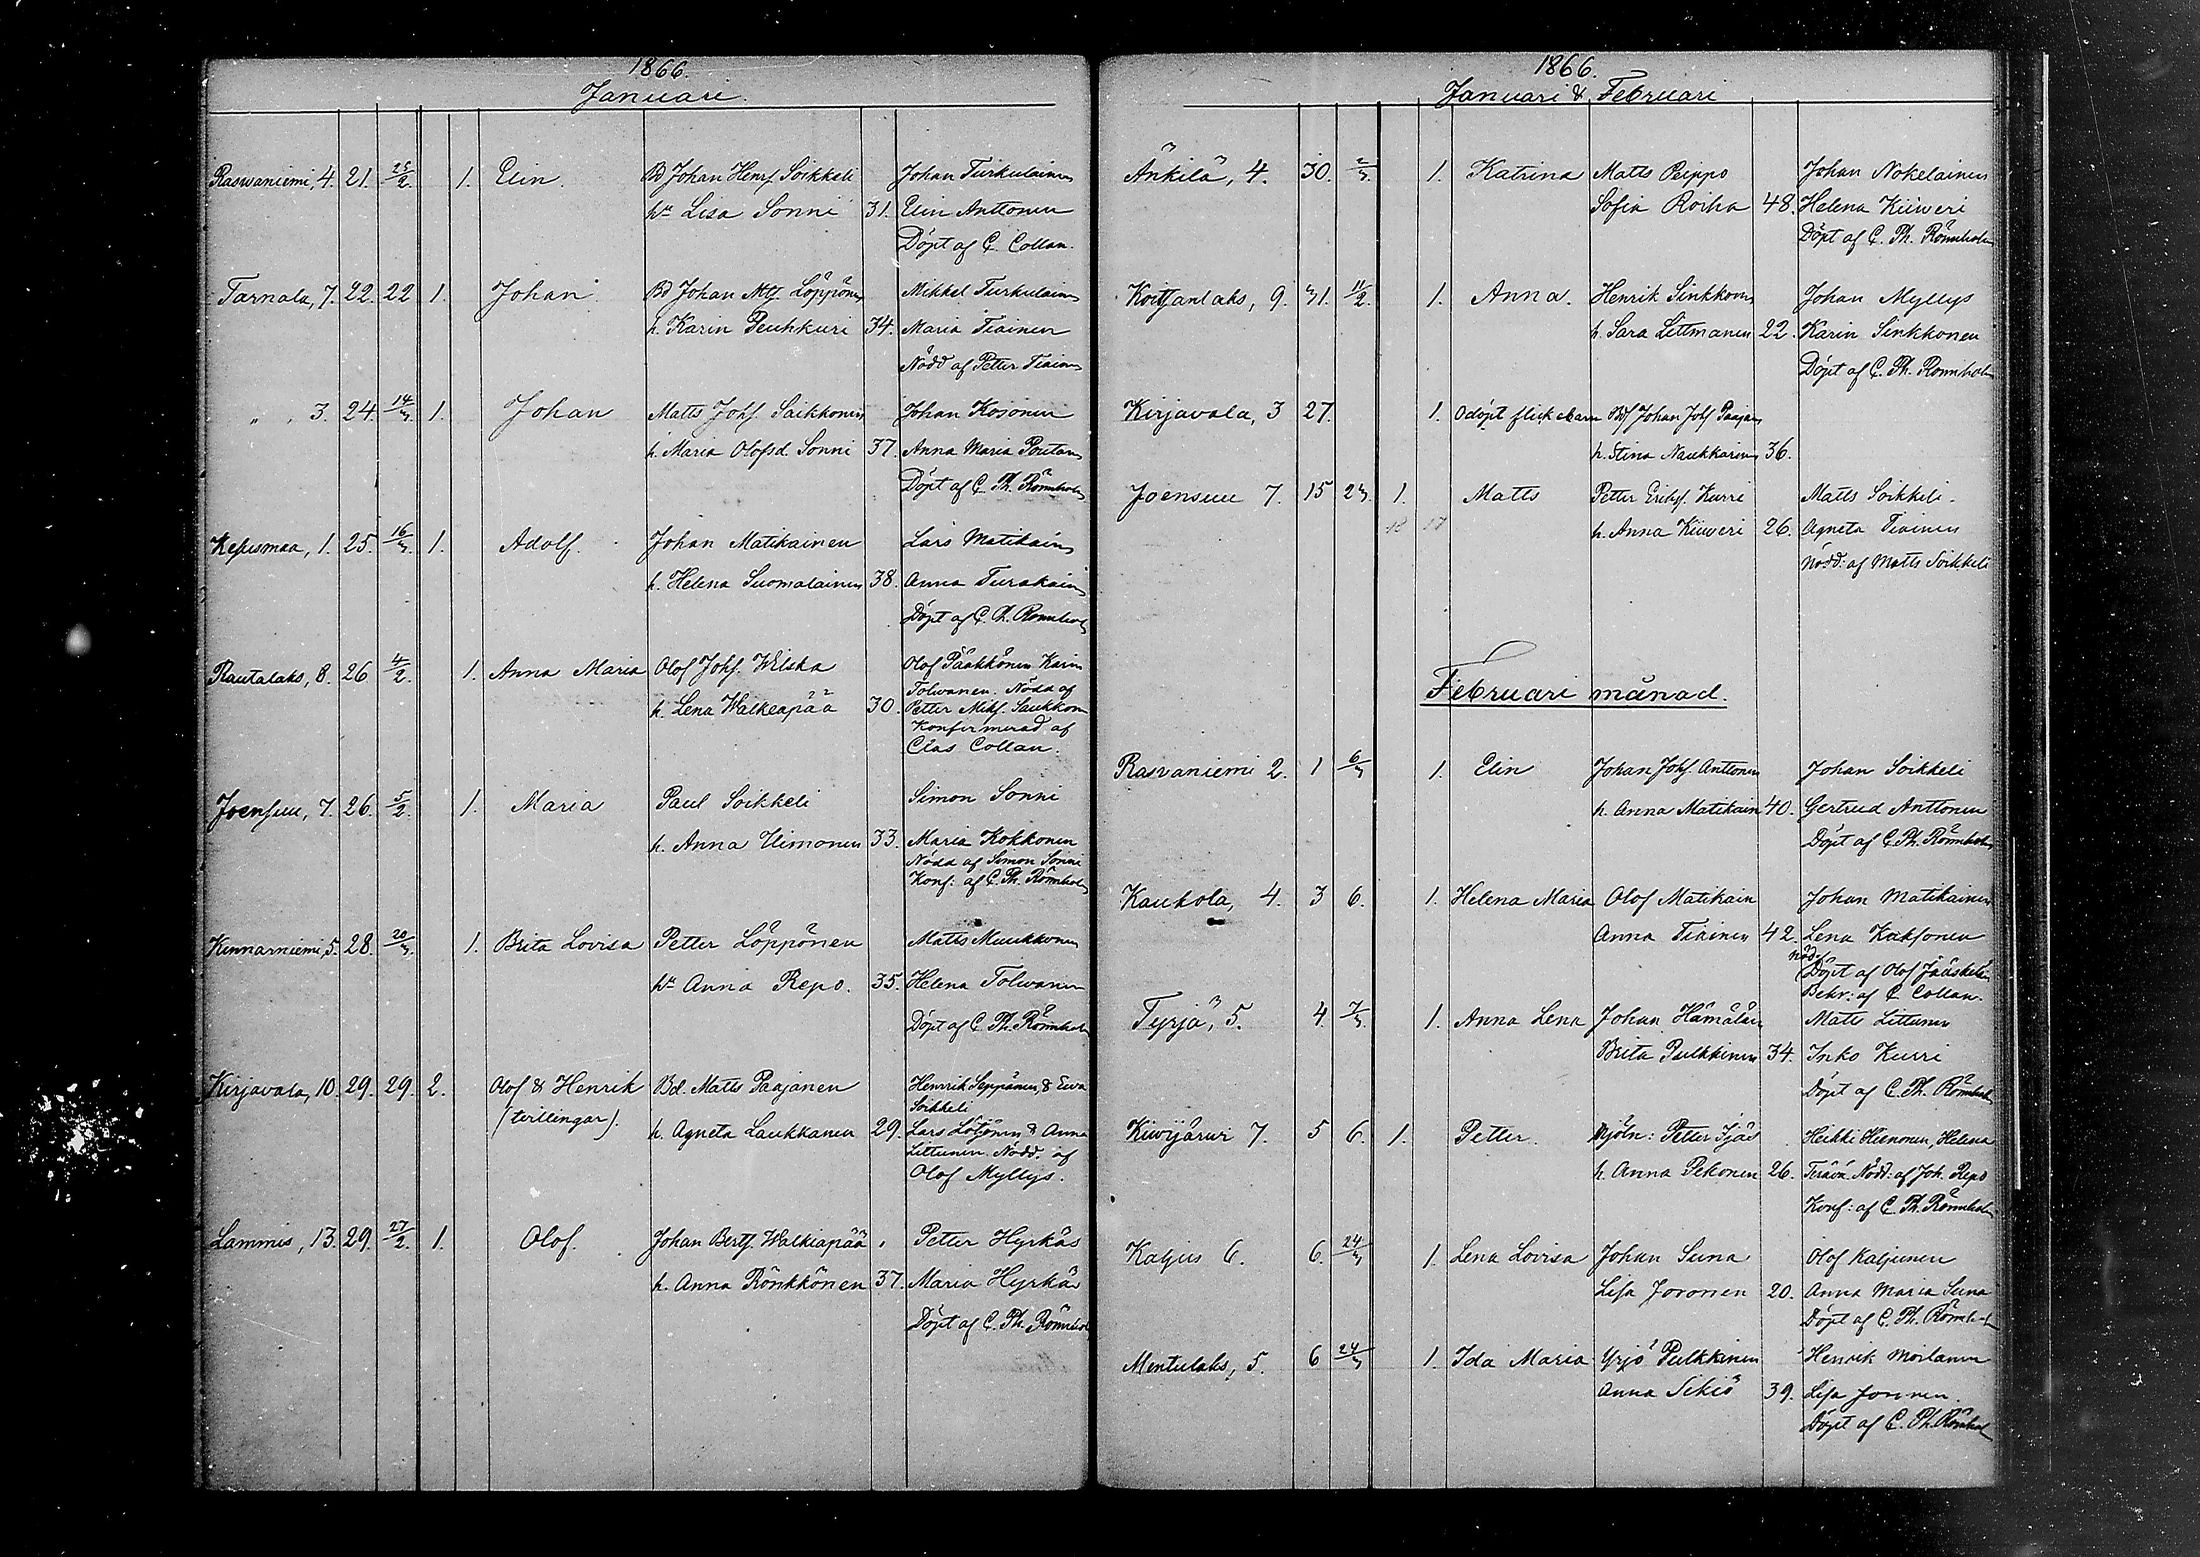 1866.
Januari.
Raswaniemi, 4. 21. 25/2 1. Elin. Bd Johan Henrs. Soikkeli Johan Turkulainen
hu Lisa Sonni 31. Elin Anttonen
Döpt af C. Collan.
Tarnala, 7. 22. 22 1. Johan Bd Johan Mtts. Löppönen Mikkel Turkulain
h. Karin Peuhkuri 34. Maria Tiainen
Nödd af Petter Tiainen
" " 3. 24. 14/3. 1. Johan Matts Johs. Saikkonen Johan Kosonen
h. Maria Olofsd. Sonni 37. Anna Maria Poutan
Döpt af C. Th. Römholm
Kesusmaa, 1. 25. 16/3. 1. Adolf. Johan Matikainen Lars Matikain
h. Helena Suomalainen 38. Anna Turakain
Döpt af C. Th. Römholm
Rautalaks, 8. 26 4/2. 1. Anna Maria Olof Johs. Wilska Olof Pääkkönen Karin
Tolwanen. Nödd af
h. Lena Walkeapää 30. Petter Miks. Saukkon
Konfirmerad af
Clas Collan.
Joensuu, 7. 26. 5/2. 1. Maria Paul Soikkeli Simon Sonni
h. Anna Uimonen 33. Maria Kokkonen
Nödd af Simon Sonni
Konf: af C. Th. Römholm
Kinnarniemi, 5. 28. 20/3. 1. Brita Lovisa Petter Löppönen Matts Muukkonen
hu Anna Repo. 35. Helena Tolwanen
Döpt af C. Th. Römholm
Kirjavala, 10. 29. 29. 2. Olof & Henrik Bd. Matts Paajanen Henrik Seppänen, & Ewa
(tvillingar). Soikkeli
h. Agneta Laukkanen 29. Lars Lötjönen & Anna
Littunen. Nödd. af
Olof Myllys.
Lammis, 13. 29. 27/2. 1. Olof. Johan Berts. Walkiapää Petter Hyrkäs
h. Anna Rönkkönen 37. Maria Hyrkäs
Döpt af C. Th. Römholm
1866.
Januari & Februari
Änkilä, 4. 30. 2/3. 1. Katrina Matts Peippo Johan Nokelainen
Sofia Roiha 48. Helena Kiiweri
Döpt af C. Th. Römholm
Koitsanlaks, 9. 31. 11/2. 1. Anna. Henrik Sinkkonen Johan Myllys
h. Sara Littmanen 22. Karin Sinkkonen
Döpt af C. Th. Römholm
Kirjavala, 3 27. 1. Odöpt flickebarn Bds Johan Johs Paajan
h. Stina Naukkarinen 36.
Joensuu 7. 15 23. 1. Matts Petter Eriks. Kurri Matts Soikkeli.
18 17 h. Anna Kiiweri 26. Agneta Tiainen
Nödd: af Matts Soikkeli
Februari månad.
Rasvaniemi 2. 1 6/3 1. Elin Johan Johs. Anttonen Johan Soikkeli
h. Anna Matikain 40. Gertrud Anttonen
Döpt af C. Th. Römholm
Kaukola, 4. 3 6. 1. Helena Maria Olof Matikain Johan Matikainen
Anna Tiainen 42. Lena Kaksonen
nöd
Döpt af Olof Jääskeläin
Bekr: af C. Collan.
Tyrjä, 5. 4. 7/3. 1. Anna Lena Johan Hämäläin Matts Littunen
Brita Pulkkinen 34. Inko Kurri
Döpt af C. Th. Römholm
Kiwijärwi 7. 5 6. 1. Petter. Mjöln: Petter Ijäs Heikki Hienonen, Helena
h. Anna Pekonen 26. Terävä. Nödd: af Joh. Repo
Konf: af C. Th. Römholm
Kaljus 6. 6. 24/3 1. Lena Lovisa Johan Suna Olof Kaljunen
Lisa Joronen 20. Anna Maria Suna
Döpt af C. Th. Römholm
Mentulaks, 5. 6 24/3 1. Ida Maria Yrjö Pulkkinen Henrik Moilanen
Anna Sikiö 39. Lisa Joronen
Döpt af C. Th. Römholm